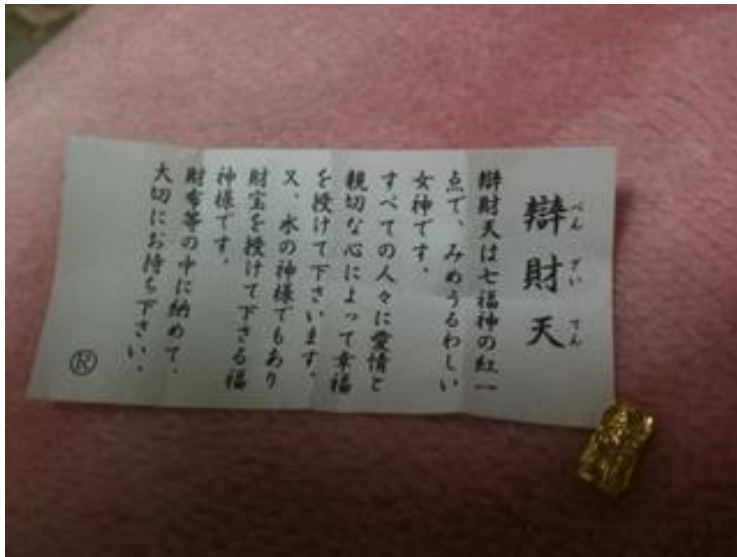 辯財天
べんざいてん
辯財天は七福神の紅一
点で、みめうるわしい
女神です。
すべての人々に愛情と
親切な心によって幸福
を授けて下さいます。
又、水の神様でもあり
財宝を授けて下さる福
神様です。
財布等の中に納めて、
大切にお持ち下さい。
Ⓡ